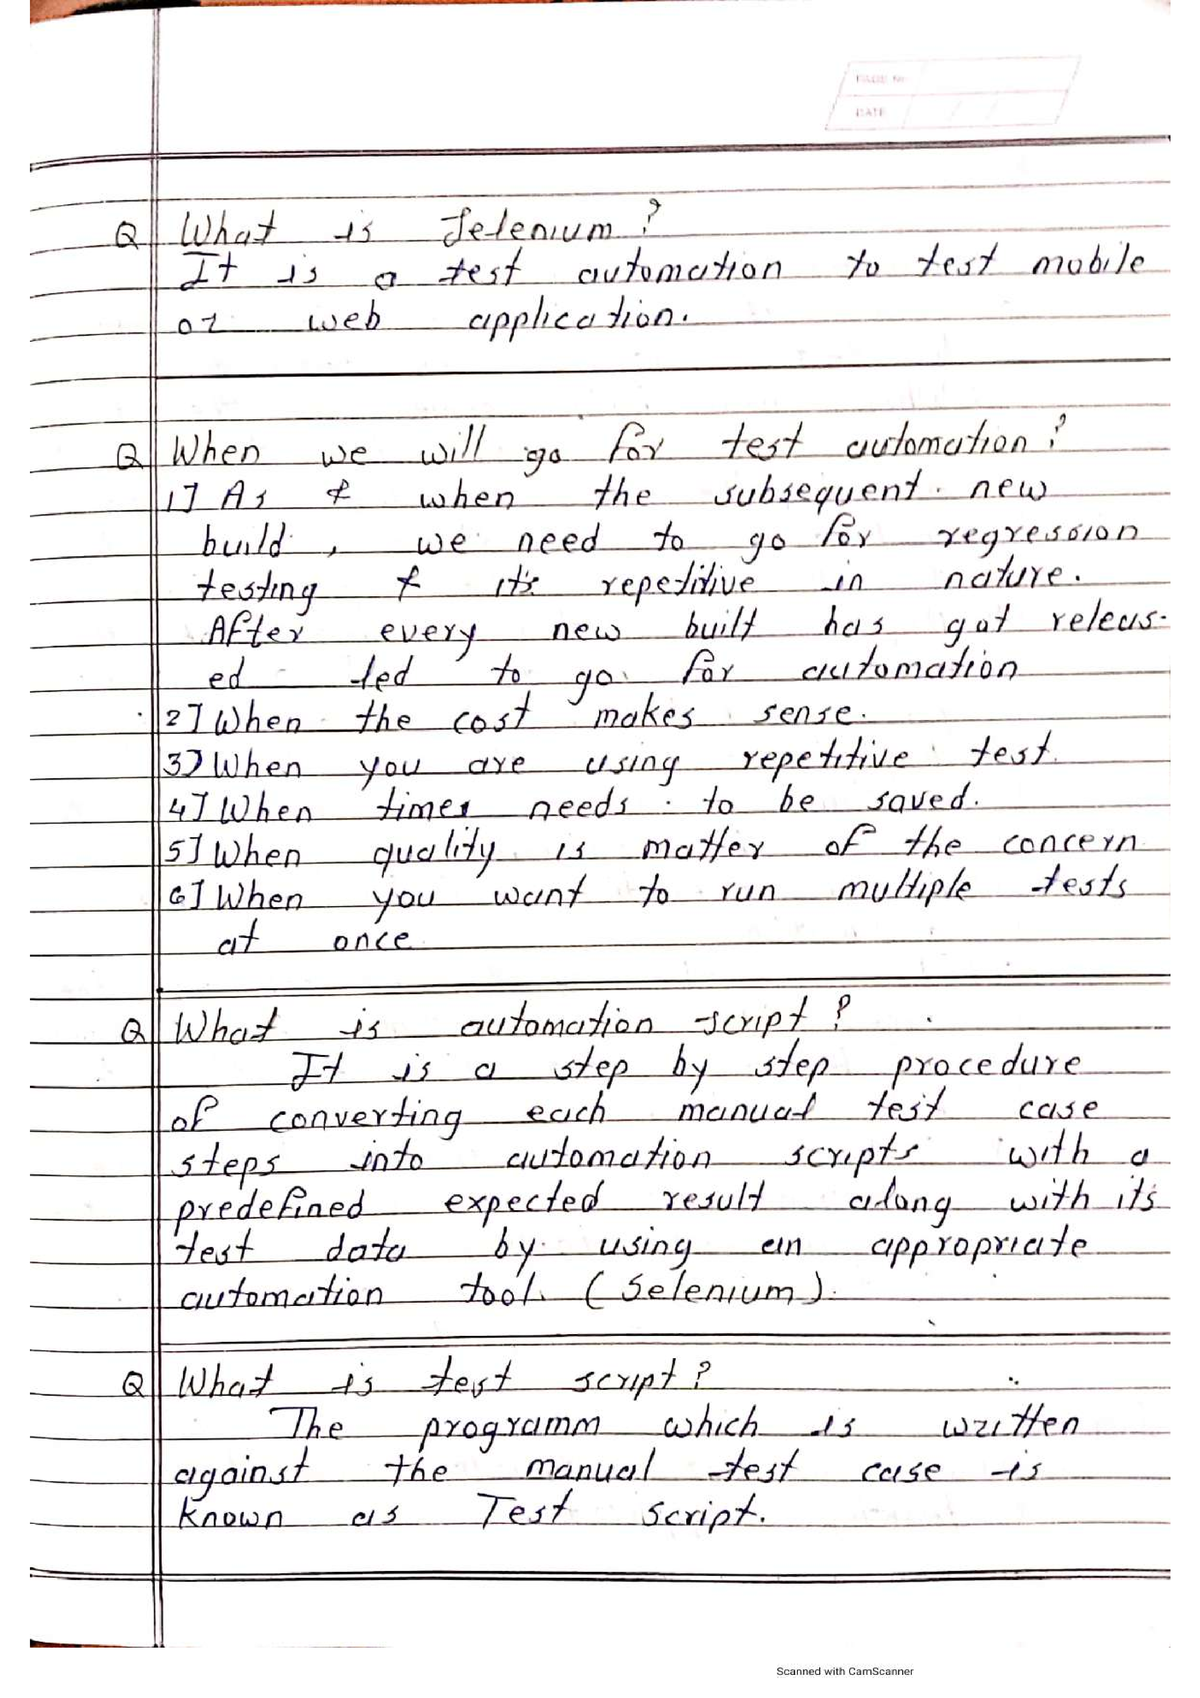 PAGE No.
DATE
Q What is Selenium?
It is a test automation to test mobile
or web application.
Q When we will go for test automation?
1] As & when the subsequent new
build, we need to go for regression
testing & it's repetitive in nature.
After every new built has got releas-
ed led to go for automation
2] When the cost makes sense.
3] When you are using repetitive test.
4] When times needs to be saved.
5] When quality is matter of the concern
6] When you want to run multiple tests
at once
Q What is automation script?
It is a step by step procedure
of converting each manual test case
steps into automation scripts with a
predefined expected result along with its
test data by using an appropriate
automation tool. (Selenium).
Q What is test script?
The programm which is written
against the manual test case is
known as Test script.
Scanned with CamScanner